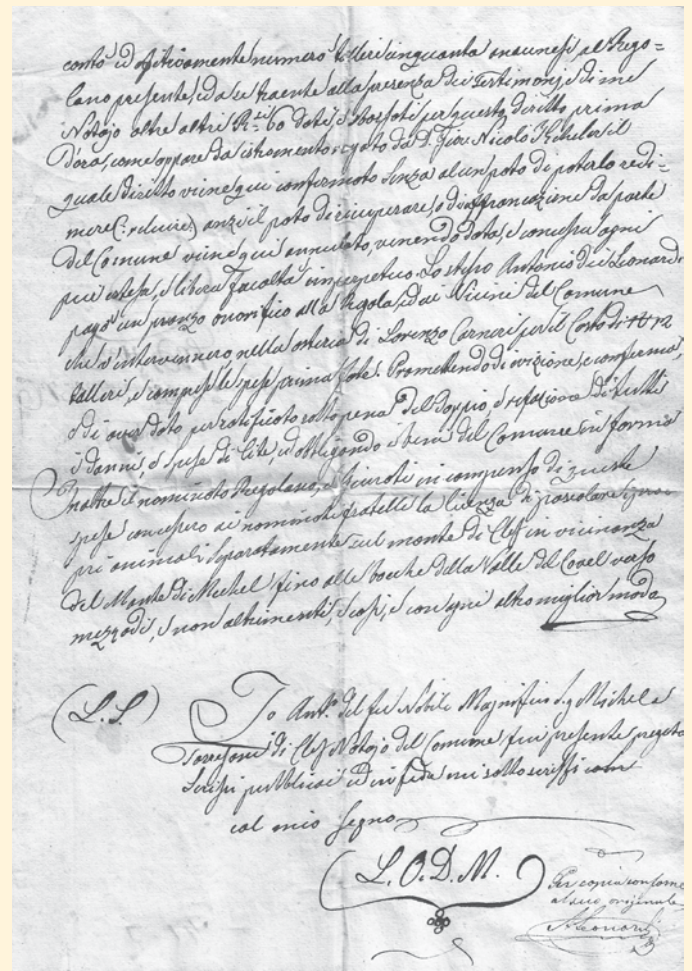 contò ed effettivamente numerò talleri cinquanta anaunesi al Rego=
lano presente, ed a se traente alla presenza dei Testimonj, e di me
Notajo altre altri R.si 60 dati, e sborsati per questo diritto prima
d'ora, come appare da istromento rogato da D. Gior Nicolò
quale diritto viene qui confermato senza alcun pato di poterlo redi=
mere anzi il pato di ricuperare, o di affrancazione da parte
del Comune viene qui annulato, venendo data, e concessa ogni
più estesa, e libera facoltà in perpetuo. Lo stesso Antonio dei Leonardi
pagò un pranzo onorifico alla Regola, ed ai Vicini del Comune
che v'intervennero nella osteria di Lorenzo Carneri per il Costo di 12
talleri, e comprese le spese prima fate. Promettendo di evizione, e conferma,
e di aver dato per ratificato sotto pena del doppio, e rifazione di tutti
i danni, e spese di lite, ed obbligando i beni del Comune in forma
Inoltre il nominato Regolano, e Giurati in compenso di queste
spese concessero ai nominati fratelli la licenza di pascolare i pro=
pri animali separatamente sul monte di Cles in vicinanza
del Monte di Mechel fino alle bocche della Valle del Covel verso
mezzodì, e non altrimenti, e così, e con ogni altro miglior modo
(L.S) Io Ant.o del fu Nobile Magnifico Sig Michele
Torresani di Cles Notajo del Comune fui presente, pregato
scrissi pubblicai ed in fede mi sottoscrissi com
col mio segno
L. O. D. M.
Per copia conforme
al suo originale
A Leonardi